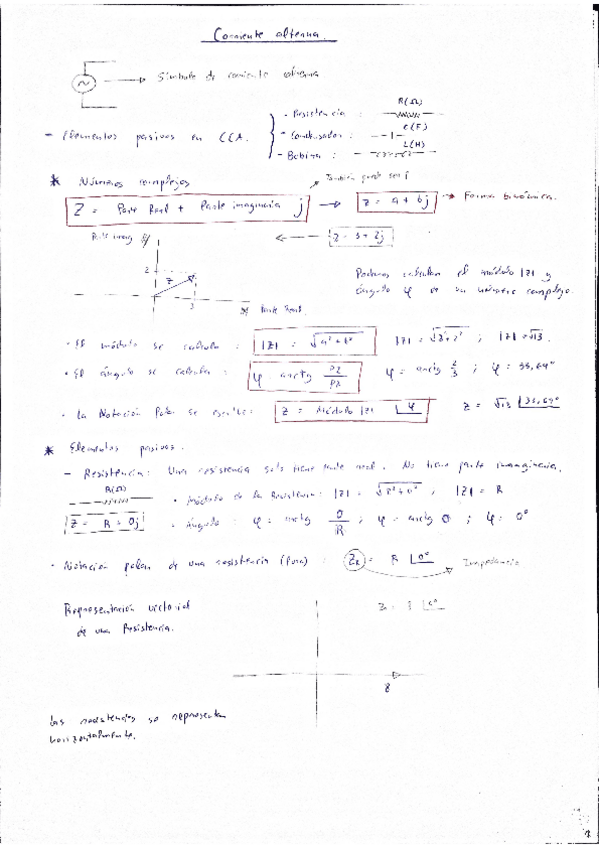 Corriente alterna.
Símbolo de corriente alterna
- Elementos pasivos en CCA.
- Resistencia: R(Ω)
- Condensador: C(F)
- Bobina: L(H)
* Números complejos
También puede ser i
Z = Parte Real + Parte imaginaria j → z = a + bj → Forma binómica.
z = 3 + 2j
Parte imag
2
z
3
Parte Real
Podemos calcular el módulo |z| y
ángulo φ de un número complejo.
· El módulo se calcula: |z| = √a² + b² |z| = √3² + 2² ; |z| = √13.
· El ángulo se calcula: φ arctg φ = arctg 2/3 ; φ = 33,69°
· La Notación Polar se escribe: z = Módulo |z| ∠φ z = √13 ∠33,69°
* Elementos pasivos.
- Resistencia: Una resistencia solo tiene parte real. No tiene parte imaginaria.
R(Ω)
z = R + 0j
· Módulo de la Resistencia: |z| = √R² + 0² ; |z| = R
· Ángulo: φ = arctg 0/R ; φ = arctg 0 ; φ = 0°
· Notación polar de una resistencia (Pura): Z_R = R ∠0° → Impedancia
Representación vectorial
de una Resistencia.
8
Las resistencias se representan
horizontalmente.
1